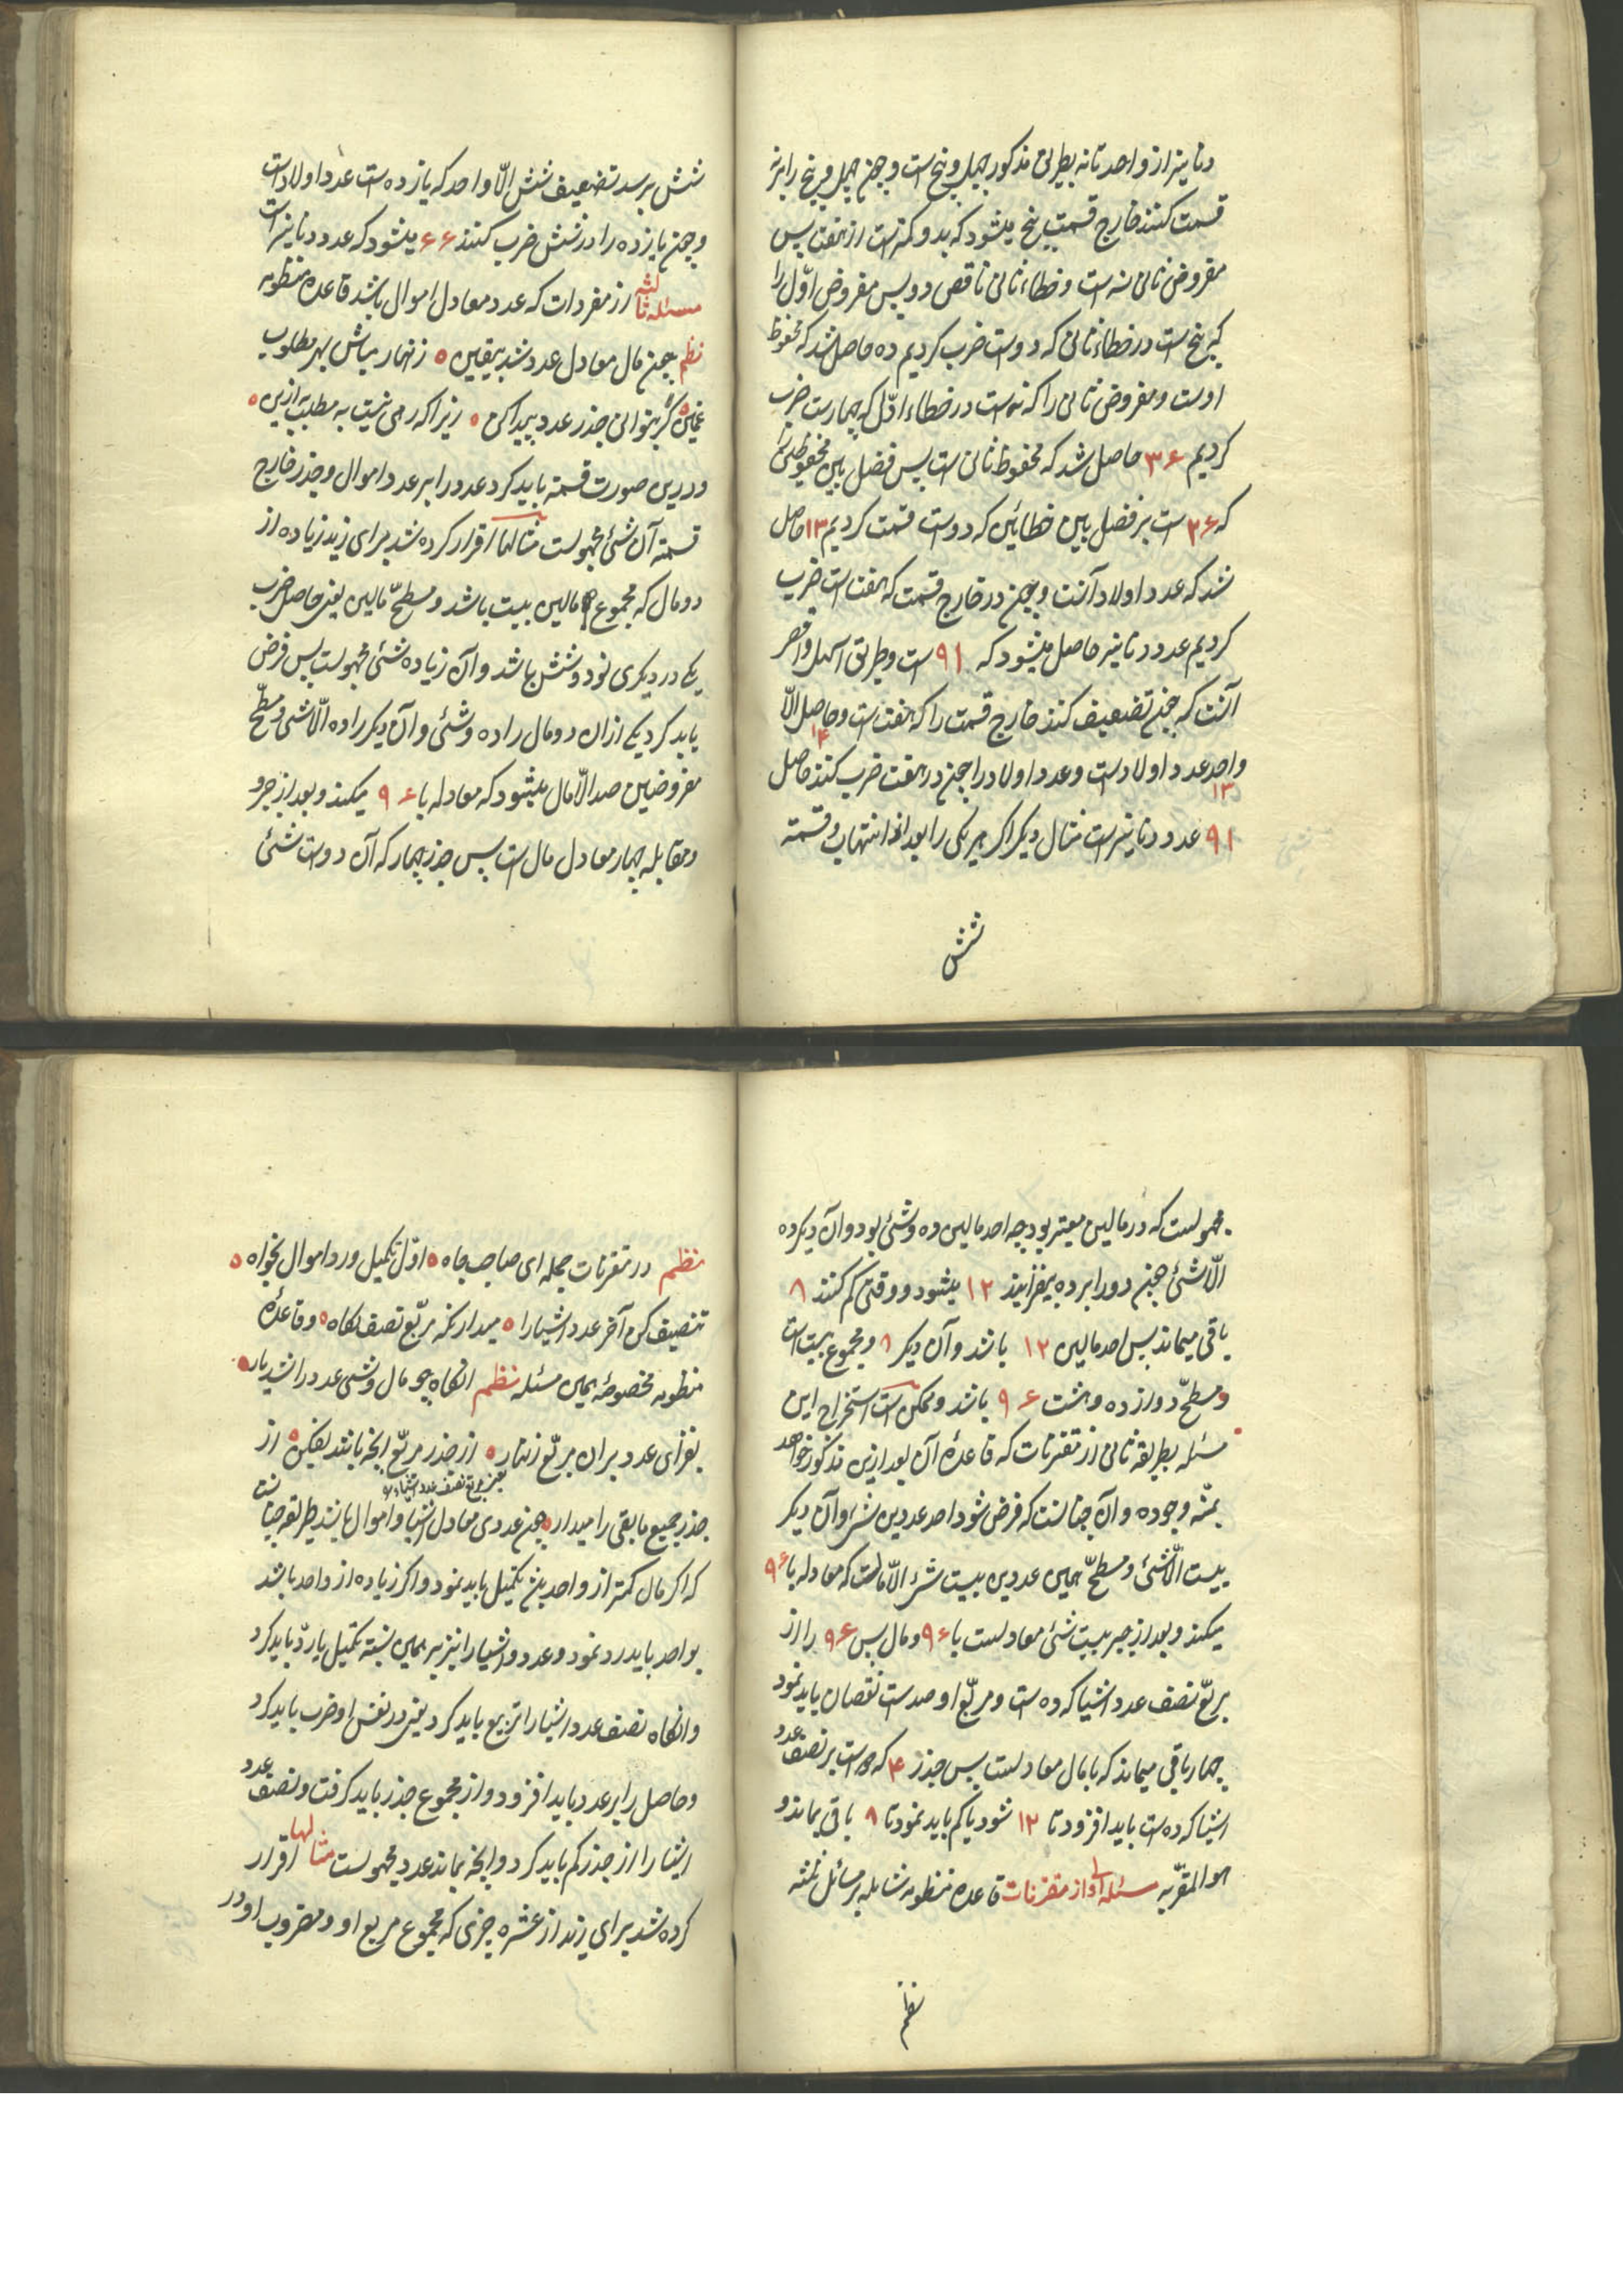 دنانیر از واحد تا نه بطریق مذکور چهل و پنج است و چون چهل و پنج را بر نه
قسمت کنند خارج قسمت پنج میشود که بدو کمترست از هفت پس
مفروض ثانی نه است و خطاء ثانی ناقص دو پس مفروض اوّل را
که پنج است در خطاء ثانی که دوست ضرب کردیم ده حاصل شد که محفوظ
اوست و مفروض ثانی را که نه است در خطاء اوّل که چهارست ضرب
کردیم ۳۶ حاصل شد که محفوظ ثانی است پس فضل بین محفوظین را
که ۲۶ است بر فضل بین خطائین که دوست قسمت کردیم ۱۳ حاصل
شد که عدد اولاد آنست و چون در خارج قسمت که هفت است ضرب
کردیم عدد دنانیر حاصل میشود که ۹۱ است و طریق اسهل و اقصر
آنست که چون تضعیف کنند خارج قسمت را که هفت است و حاصل الّا
۱۴
واحد عدد اولادست و عدد اولاد را چون در هفت ضرب کنند حاصل
۱۳
۹۱ عدد دنانیرست مثال دیگر اگر هر یکی را بعد از انتهاب و قسمة
شش
شش برسد تضعیف شش الّا واحد که یازده است عدد اولادست
و چون یازده را در شش ضرب کنند ۶۶ میشود که عدد دنانیر است
مسئله ثالثه از مفردات که عدد معادل اموال باشد قاعده منظومه
نظم چون مال معادل عدد شد بیقین ٥ زنهار بباش بهر مطلوب
غمین ٥ گر بتوانی جذر عدد پیدا کن ٥ زیرا که رهی نیست به مطلب به ازین ٥
و درین صورت قسمة باید کرد عدد را بر عدد اموال و جذر خارج
قسمة آن شئ مجهولست مثالها اقرار کرده شد برای زید زیاده از
دو مال که مجموع مالین بیست باشد و مسطحّ مالین یعنی حاصل ضرب
یکی در دیگری نود و شش باشد و آن زیاده شئی مجهولست پس فرض
باید کرد یکی ازان دو مال را ده و شئی و آن دیگر را ده الّا شئی و مسطّح
مفروضین صد الّا مال میشود که معادله با ۹۶ میکند و بعد از جبر
و مقابله چهار معادل مال است پس جذر چهار که آن دوست شئی
مجهولست که در مالین معتبر بود چه احد مالین ده و شئی بود و آن دیگر ده
الّا شئ چون دو را بر ده بیفزایند ۱۲ میشود و وقتی کم کنند ۸
باقی میماند پس احد مالین ۱۲ باشد و آن دیگر ۸ و مجموع بیست است
و مسطحّ دوازده و هشت ۹۶ باشد و ممکن است استخراج این
مسئله بطریقه ثانی از مقترنات که قاعدهٔ آن بعد ازین مذکور خواهد
بمنّه وجوده و آن چنانست که فرض شود احد عددین شئ و آن دیگر
بیست الّا شئی و مسطحّ همین عددین بیست شئ الّا مالست که معادله با ۹۶
میکند و بعد از جبر بیست شئ معادلست با ۹۶ و مال پس ۹۶ را از
مربّع نصف عدد اشیا که ده است و مربّع او صدست نقصان باید نمود
چهار باقی میماند که با مال معادلست پس جذر ۴ که دو است بر نصف عدد
اشیا که ده است باید افزود تا ۱۲ شود یا کم باید نمود تا ۸ باقی بماند و
هوالمقرّ به مسئله اولی از مقترنات قاعده منظومه شامله بر مسائل ثلثه
نظم
نظم در مقترنات جمله ای صاحب جاه ٥ اوّل تکمیل و رد اموال بخواه ٥
تنصیف کن آخر عدد اشیا را ٥ میدار نگه مربّع نصف نگاه ٥ و قاعدهٔ
منظومه مخصوصهٔ همین مسئله نظم انگاه چو مال و شئی عدد را شد یار ٥
بفزای عدد بران مربّع زنهار ٥ از جذر مربّع انچه باشد بفکن ٥ از
یعنی مربع نصف عدد اشیاء
جذر جمیع مابقی را میدار ٥ چون عددی معادل اشیا و اموال باشد طریقه چنانست
که اگر مال کمتر از واحد بشد تکمیل باید نمود و اگر زیاده از واحد باشد
بواحد باید رد نمود و عدد و اشیا را نیز به همین نسبة تکمیل یا ردّ باید کرد
وانگاه نصف عدد اشیا را تربیع باید کرد یعنی در نفس او ضرب باید کرد
و حاصل را بر عدد باید افزود و از مجموع جذر باید گرفت و نصف عدد
اشیا را از جذر کم باید کرد و انچه بماند عدد مجهولست مثالها اقرار
کرده شد برای زید از عشره چیزی که مجموع مربع او و مضروب او در